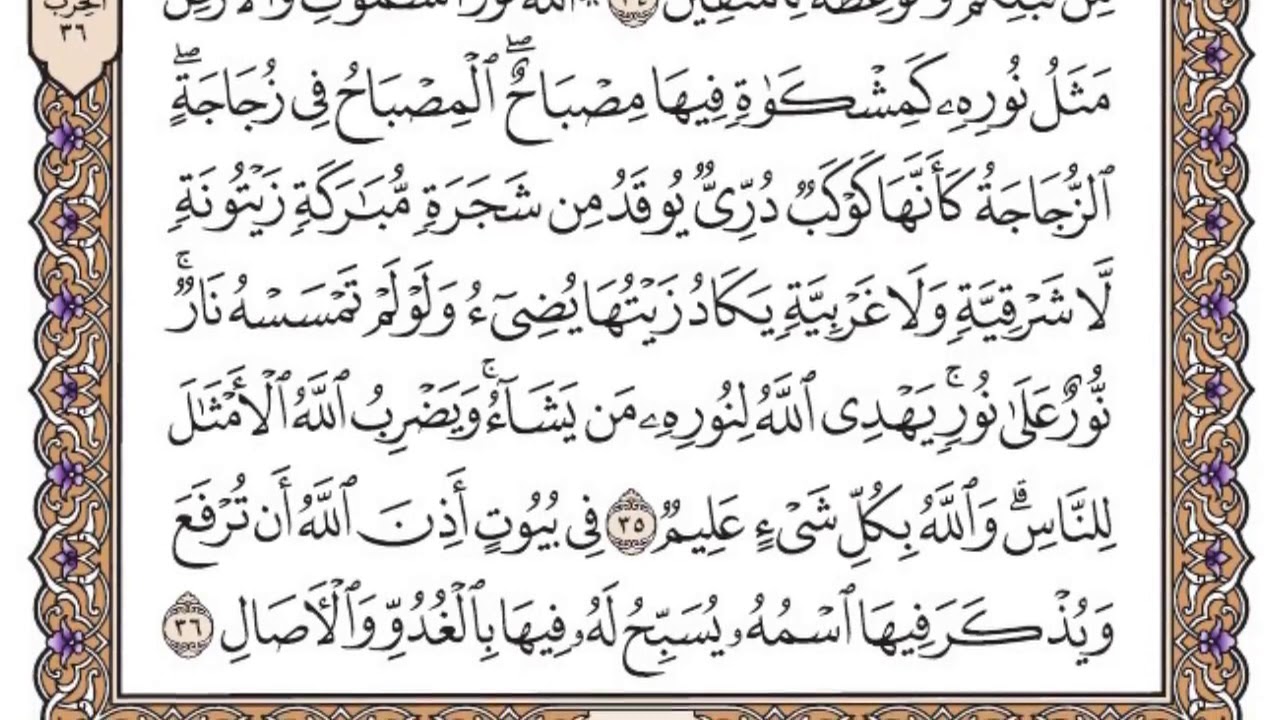 الحزب
٣٦
مِّن قَبْلِكُمْ وَمَوْعِظَةً لِّلْمُتَّقِينَ ٣٤ ۞ ٱللَّهُ نُورُ ٱلسَّمَٰوَٰتِ وَٱلْأَرْضِ
مَثَلُ نُورِهِۦ كَمِشْكَوٰةٍ فِيهَا مِصْبَاحٌ ۖ ٱلْمِصْبَاحُ فِى زُجَاجَةٍ ۖ
ٱلزُّجَاجَةُ كَأَنَّهَا كَوْكَبٌ دُرِّىٌّ يُوقَدُ مِن شَجَرَةٍ مُّبَٰرَكَةٍ زَيْتُونَةٍ
لَّا شَرْقِيَّةٍ وَلَا غَرْبِيَّةٍ يَكَادُ زَيْتُهَا يُضِىٓءُ وَلَوْ لَمْ تَمْسَسْهُ نَارٌ ۚ
نُّورٌ عَلَىٰ نُورٍ ۚ يَهْدِى ٱللَّهُ لِنُورِهِۦ مَن يَشَآءُ ۚ وَيَضْرِبُ ٱللَّهُ ٱلْأَمْثَٰلَ
لِلنَّاسِ ۗ وَٱللَّهُ بِكُلِّ شَىْءٍ عَلِيمٌ ٣٥ فِى بُيُوتٍ أَذِنَ ٱللَّهُ أَن تُرْفَعَ
وَيُذْكَرَ فِيهَا ٱسْمُهُۥ يُسَبِّحُ لَهُۥ فِيهَا بِٱلْغُدُوِّ وَٱلْأَصَالِ ٣٦